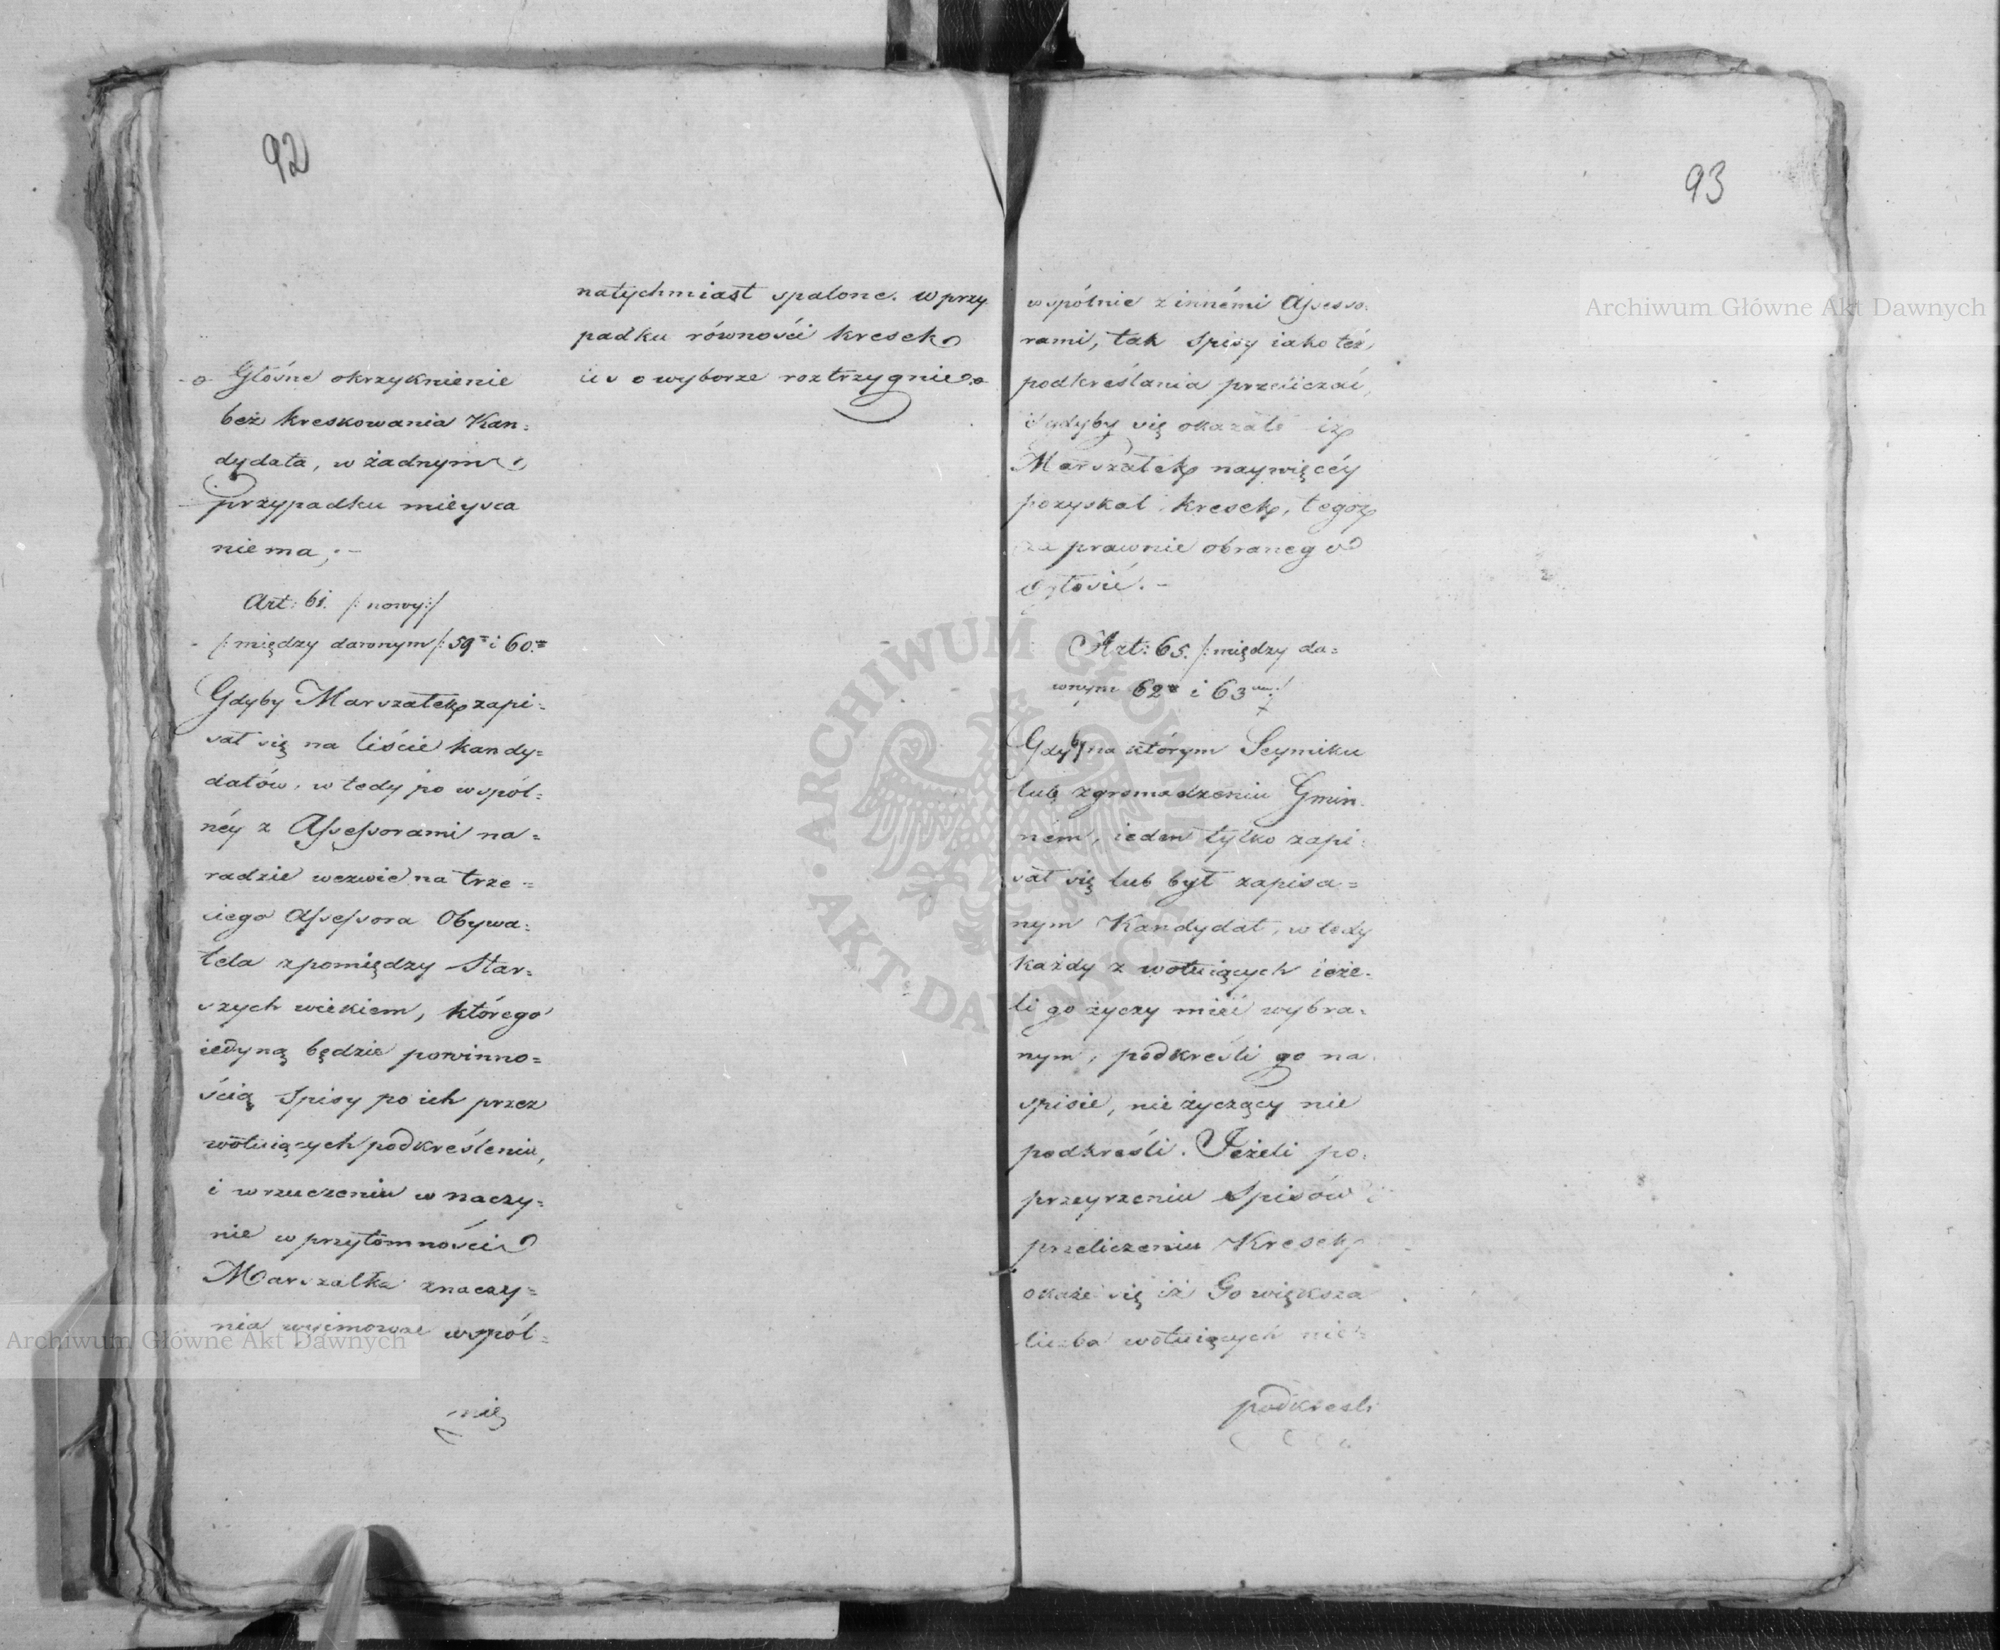 92
natychmiast spalone. w przy
padku równości kresek
los o wyborze roztrzygnie.
Głośne okrzyknienie
bez kreskowania Kan=
dydata, w żadnym
przypadku mieysca
niema; -
Art: 61. /: nowy:/
/: między dawnym /: 59m i 60m
Gdyby Marszałek zapi=
sał się na liście kandy=
datów, wtedy po wspól=
néy z Assessorami na=
radzie wezwie na trze=
ciego Assessora Obywa=
tela z pomiędzy Star=
szych wiekiem, którego
iedyną będzie powinno=
ścią Spisy po ich przez
wotuiących podkreśleniu,
i wrzuczeniu w naczy=
nie w przytomności
Marszałka z naczy=
nia wyimowac wspól=
nie
93
wspólnie z innémi Assesso=
rami, tak Spisy iako też
podkreślania przeliczać,
i gdyby się okazało iż
Marszałek naywięcéy
pozyskał kresek, tegoż
za prawnie obranego
ogłosić. -
Art: 65. /: między da=
wnym 62m i 63m :/
Gdyby na którym Seymiku
lub zgromadzeniu Gmin=
nem, ieden tylko zapi=
sał się lub był zapisa=
nym Kandydat, wtedy
każdy z wotuiących ieże=
li go życzy mieć wybra=
nym, podkreśli go na
spisie, nie życzący nie
podkreśli. Jeżeli po
przeyrzeniu Spisów i
przeliczeniu Kresek
okaże się iż Go większa
liczba wotuiących nie
podkreśli
Archiwum Główne Akt Dawnych
Archiwum Główne Akt Dawnych
ARCHIWUM GŁÓWNE AKT DAWNYCH